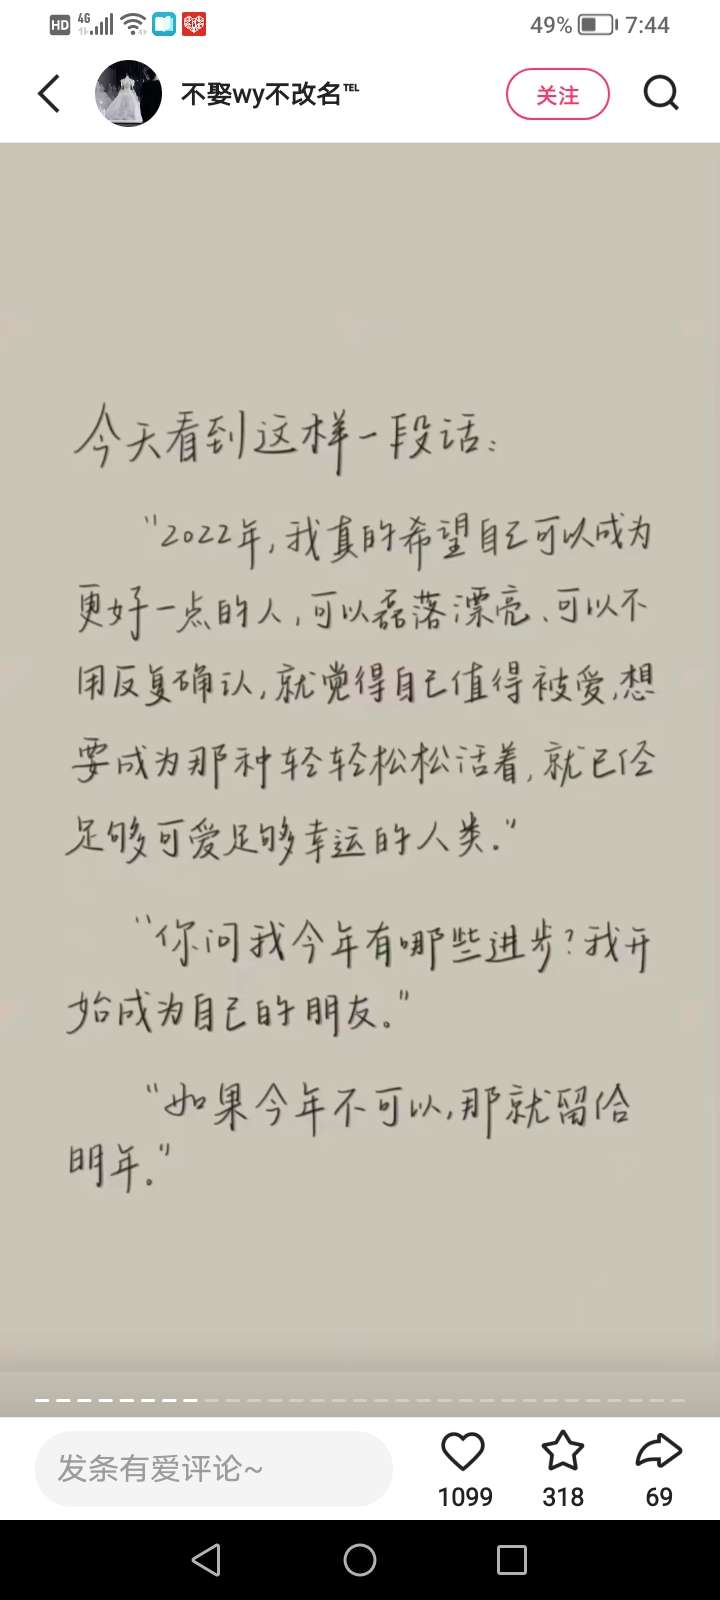 HD 4G 49% 7:44
不娶wy不改名℡ 关注
今天看到这样一段话:
"2022年,我真的希望自己可以成为
更好一点的人,可以磊落漂亮、可以不
用反复确认,就觉得自己值得被爱,想
要成为那种轻轻松松活着,就已经
足够可爱足够幸运的人类."
"你问我今年有哪些进步?我开
始成为自己的朋友。"
"如果今年不可以,那就留给
明年。"
发条有爱评论~ 1099 318 69